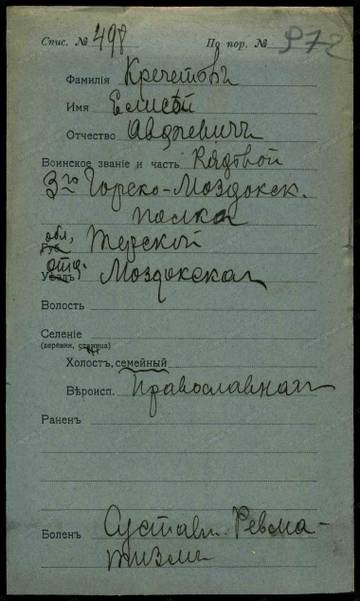 Спис. № 498 По пор. № 972
Фамилія Кречетовъ
Имя Елисѣй
Отчество Авдѣевичъ
Воинское званіе и часть Рядовой
3го Горско-Моздокск.
полка
обл. Губ. Терской
отд. Уѣздъ Моздокская
Волость
Селеніе
(деревня, станица)
Холостъ, семейный
Вѣроисп. Православная
Раненъ
Боленъ Суставн. Ревма-
тизмъ